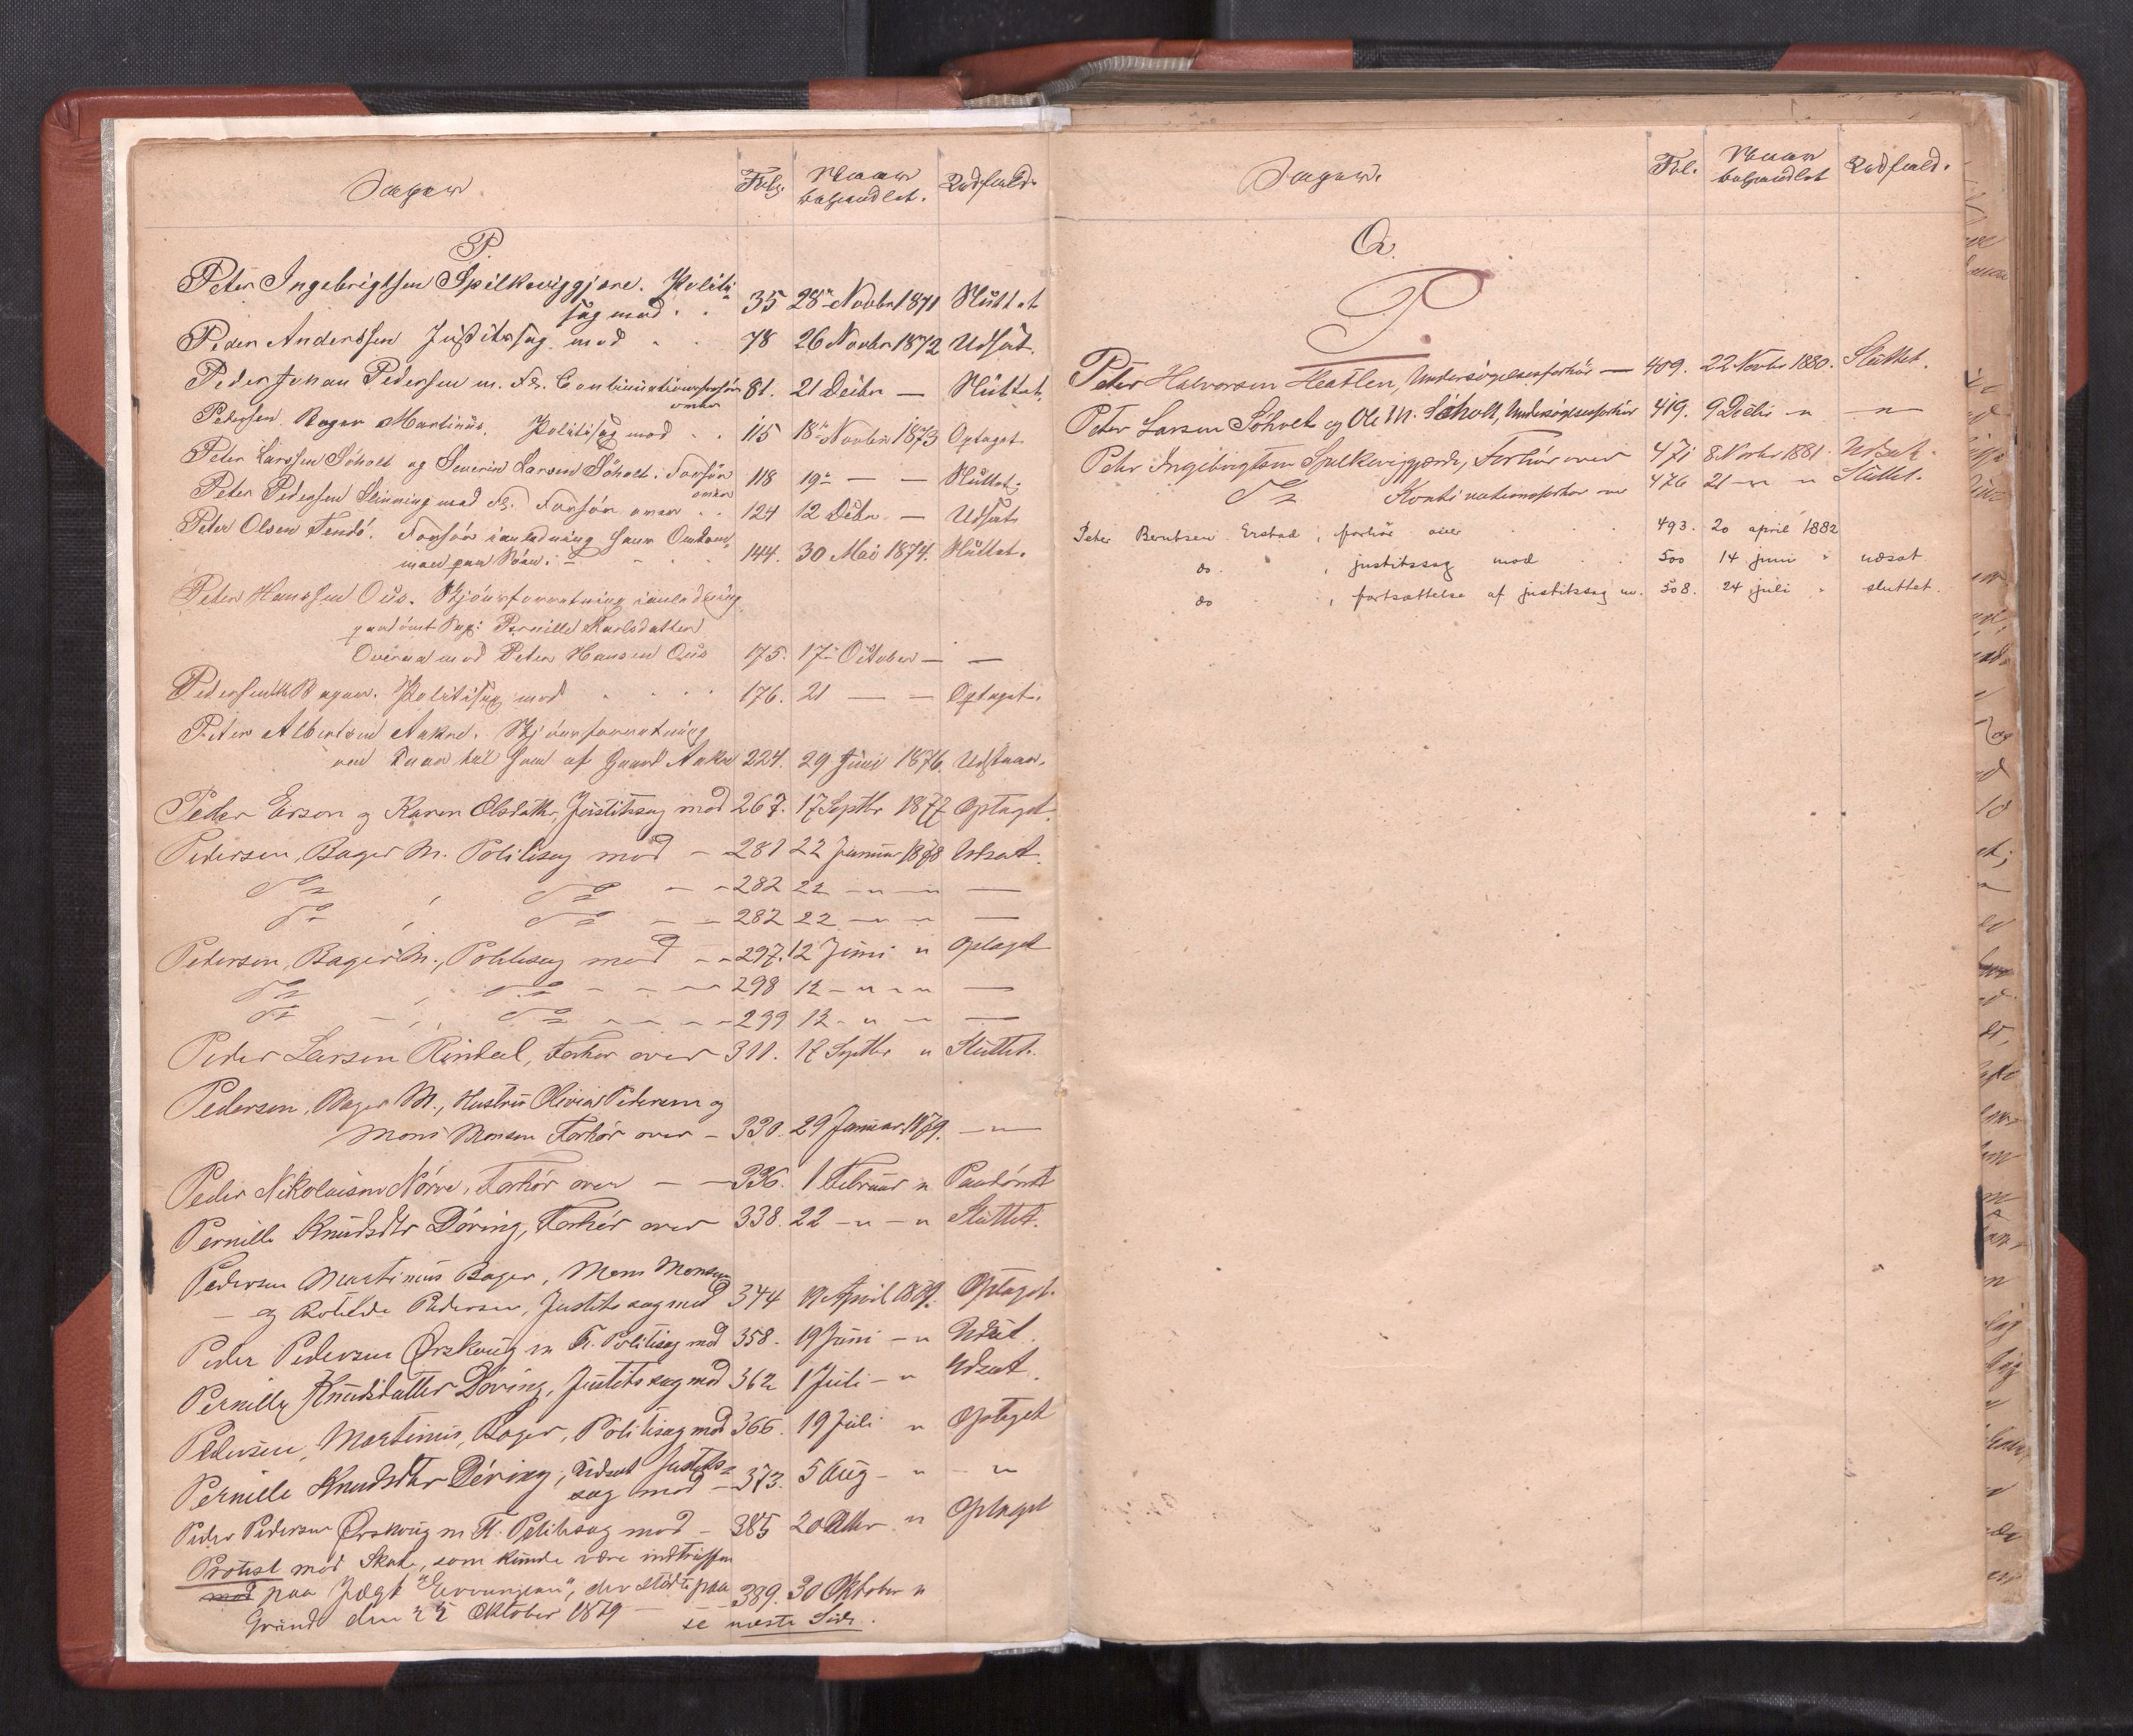 Sager. Fol. Naar behandlet. Udfald.
P.
Peter Ingebrigtsen Spilkeviggjære. Politi-
sag mod . . 35 28de Novbr 1871 Sluttet
Peder Anderssen Justitssag mod . . 78 26 Novbr 1872 Udsat.
Peder Johan Pedersen m. Fl. Continuationsforhör
over 81. 21 Decbr — Sluttet.
Pedersen Bager Martinus. Politisag mod . . 115 18de Novbr 1873 Optaget
Peter Larssen Söholt og Severin Larsen Söholt. Forhör
over 118 19de — — Sluttet.
Peter Pedersen Slinning med Fl. Forhör over . . 124 12 Decbr — Udsat
Peter Olsen Fendö. Forhör i anledning hans Omkom-
men paa Söen. 144. 30 Mai 1874. Sluttet.
Peter Hanssen Ous. Skjönsforretning i anledning
paadömt Sag: Pernille Karlsdatter
Overaa mod Peter Hansen Ous 175. 17de October — —
Pedersen M Bager. Politisag mod . . . . 176. 21 — — Optaget.
Peter Albertsen Aakre. Skjönsforretning
ved Huus til ham af Gaard Aakre 224. 29 Juni 1876. Udstaar.
Peder Erson og Karen Olsdatter, Justitssag mod 267. 17 Septbr 1877 Optaget.
Pedersen, Bager M. Politisag mod — 281 22 Januar 1878 Udsat.
Do , Do — — 282 22 — " — " —
Do , Do — — 282 22 — " — —
Pedersen, Bager M., Politisag mod — — 297. 12 Juni " Optaget
Do , Do — — — 298 12 — " — " —
Do — , Do — — — — 299 12 — " — —
Peder Larsen Rindal, Forhør over 311. 17 Septbr " Sluttet.
Pedersen, Bager M., Hustru Olivia Pedersen og
Mons Monsen Forhör over — 330. 29 Januar 1879. — " —
Peder Nikolaisen Nörve, Forhör over — — 336. 1 Februar " Paadömt
Pernille Knudsdtr Döving, Forhör over 338. 22 — " — " Sluttet.
Pedersen Martinus Bager, Mons Monsen
— og Bolette Pedersen, Justitssag mod 344 19 April 1879. Optaget.
Peder Pedersen Ørskoug m Fl. Politisag mod 358. 19 Juni — " Udsat.
Pernille Knudsdatter Döving, Justitssag mod 362 1 Juli — " Udsat.
Pedersen, Martinus, Bager, Politisag mod 366. 19 Juli " Optaget
Pernille Knudsdtr Döving, Udsat Justits-
sag mod — 373. 5 Aug — " — "
Peder Pedersen Ørskoug m Fl. Politisag mod — 385 20 Oktbr " Optaget
Protest mod Skade, som kunde være indtruffen
mod paa Jægt "", der stødte paa 389. 30 Oktober "
Grund den 25 Oktober 1879 — se næste Side.
Sager. Fol. Naar behandlet Udfald.
Q.
P.
Peter Halvorsen Hatlen, Undersögelsesforhör — 409. 22 Novbr 1880. Sluttet.
Peter Larsen Söholt og Ole M. Söholt, Undersögelsesforhör 419. 9 Decbr " — " —
Peter Ingebrigtsen Spilkeviggjærde, Forhör over 471 8 Novbr 1881. Udsat.
Do Kontinuationsforhör over 476 21 — " " Sluttet.
Peter Berntsen Erstad, forhör over . . . 493. 20 april 1882
do. , justitssag mod . . 500 14 juni " udsat
do , fortsættelse af justitssag m. 508. 24 juli " sluttet.